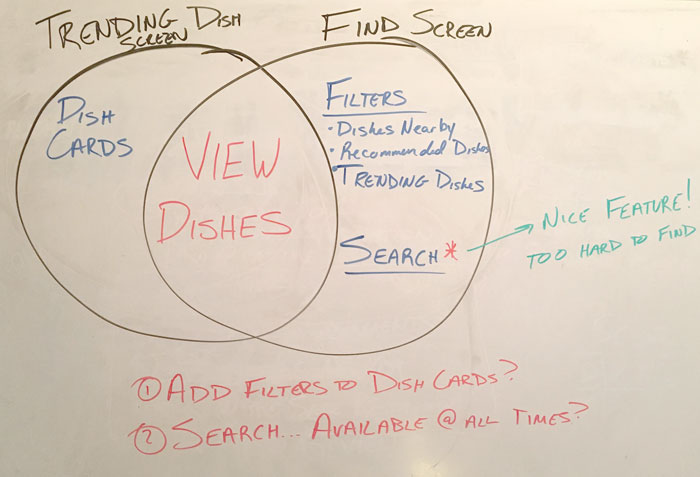 TRENDING DISH
SCREEN
FIND SCREEN
DISH
CARDS
VIEW
DISHES
FILTERS
• DISHES NEARBY
• RECOMMENDED DISHES
• TRENDING DISHES
SEARCH *
NICE FEATURE!
TOO HARD TO FIND
① ADD FILTERS TO DISH CARDS?
② SEARCH... AVAILABLE @ ALL TIMES?